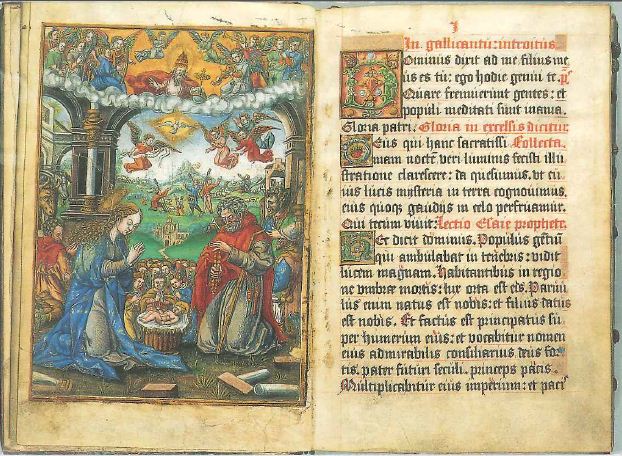 I
In. gallicantu: introitus
Dominus dixit ad me filius me
us es tu: ego hodie genui te. ps
Quare fremuerunt gentes: et
populi meditati sunt inania.
Gloria patri. Gloria in excelsis dicitur
Deus qui hanc sacratissi Collecta.
mam noctē veri luminis fecisti illu
stratione clarescere: da quesumus. ut cu
ius lucis mysteria in terra cognouimus.
eius quoqȝ gaudijs in celo perfruamur.
Qui tecum viuit. Lectio Esaie prophete.
Hec dicit dominus. Populus gētiū
qui ambulabat in tenebris: vidit
lucem magnam. Habitantibus in regio
ne vmbrae mortis: lux orta est eis. Paruu
lus enim natus est nobis: et filius datus
est nobis. Et factus est principatus su
per humerum eius: et vocabitur nomen
eius admirabilis consiliarius. deus for
tis. pater futuri seculi. princeps pacis.
Multiplicabitur eius imperium: et paci